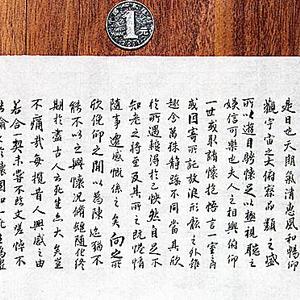 1元
是日也天朗氣清惠風和暢仰
觀宇宙之大俯察品類之盛
所以遊目騁懷足以極視聽之
娛信可樂也夫人之相與俯仰
一世或取諸懷抱悟言一室之內
或因寄所託放浪形骸之外雖
趣舍萬殊靜躁不同當其欣
於所遇蹔得於己怏然自足不
知老之將至及其所之既惓情
隨事遷感慨係之矣向之所
欣俛仰之閒以為陳迹猶不
能不以之興懷況脩短隨化終
期於盡古人云死生亦大矣豈
不痛哉每攬昔人興感之由
若合一契未嘗不臨文嗟悼不